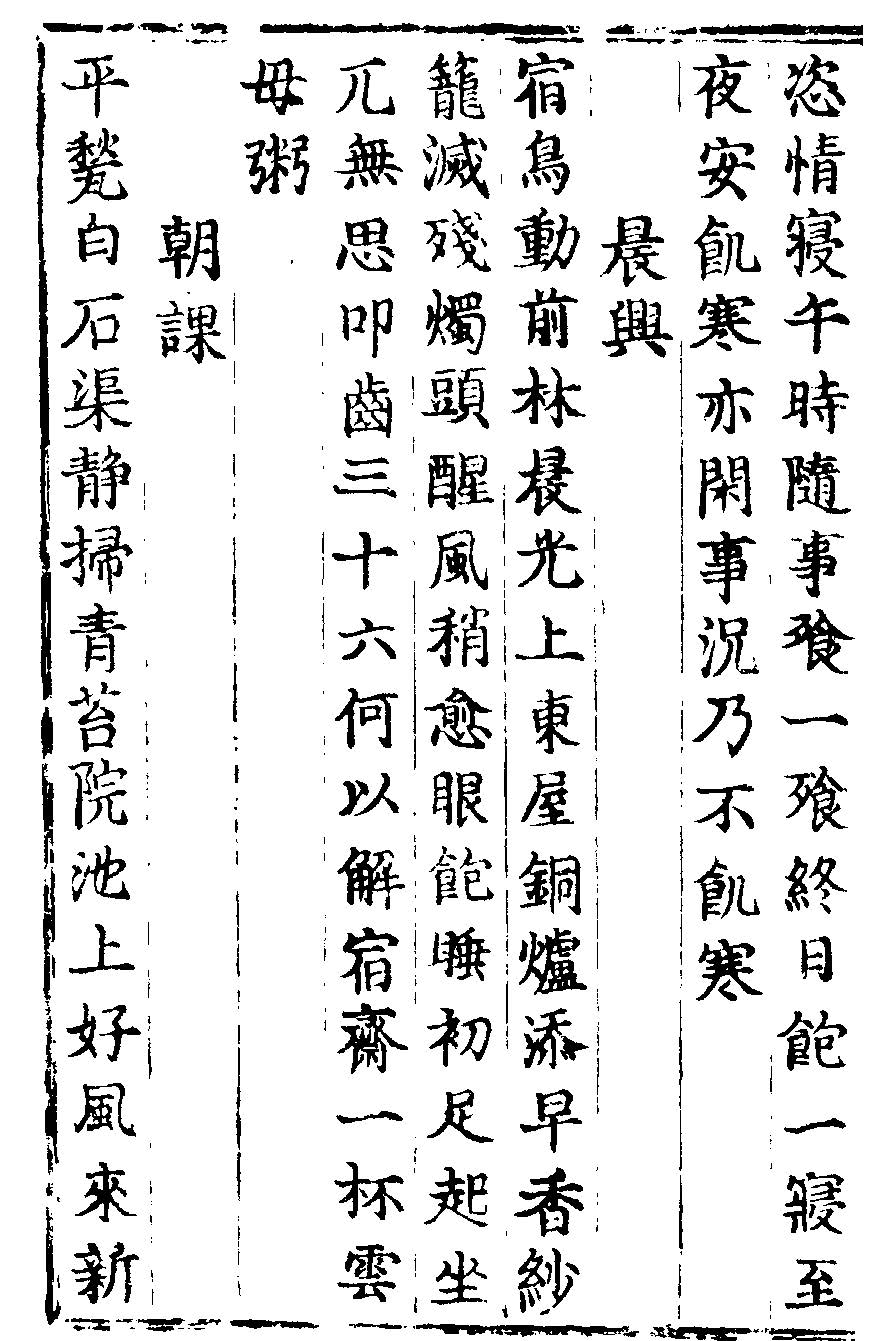 恣情寢午時隨事飡一飡終日飽一寢至
夜安飢寒亦閑事況乃不飢寒
晨興
宿鳥動前林晨光上東屋銅爐添早香紗
籠滅殘燭頭醒風稍愈眼飽睡初足起坐
兀無思叩齒三十六何以解宿齋一杯雲
母粥
朝課
平甃白石渠静掃青苔院池上好風來新